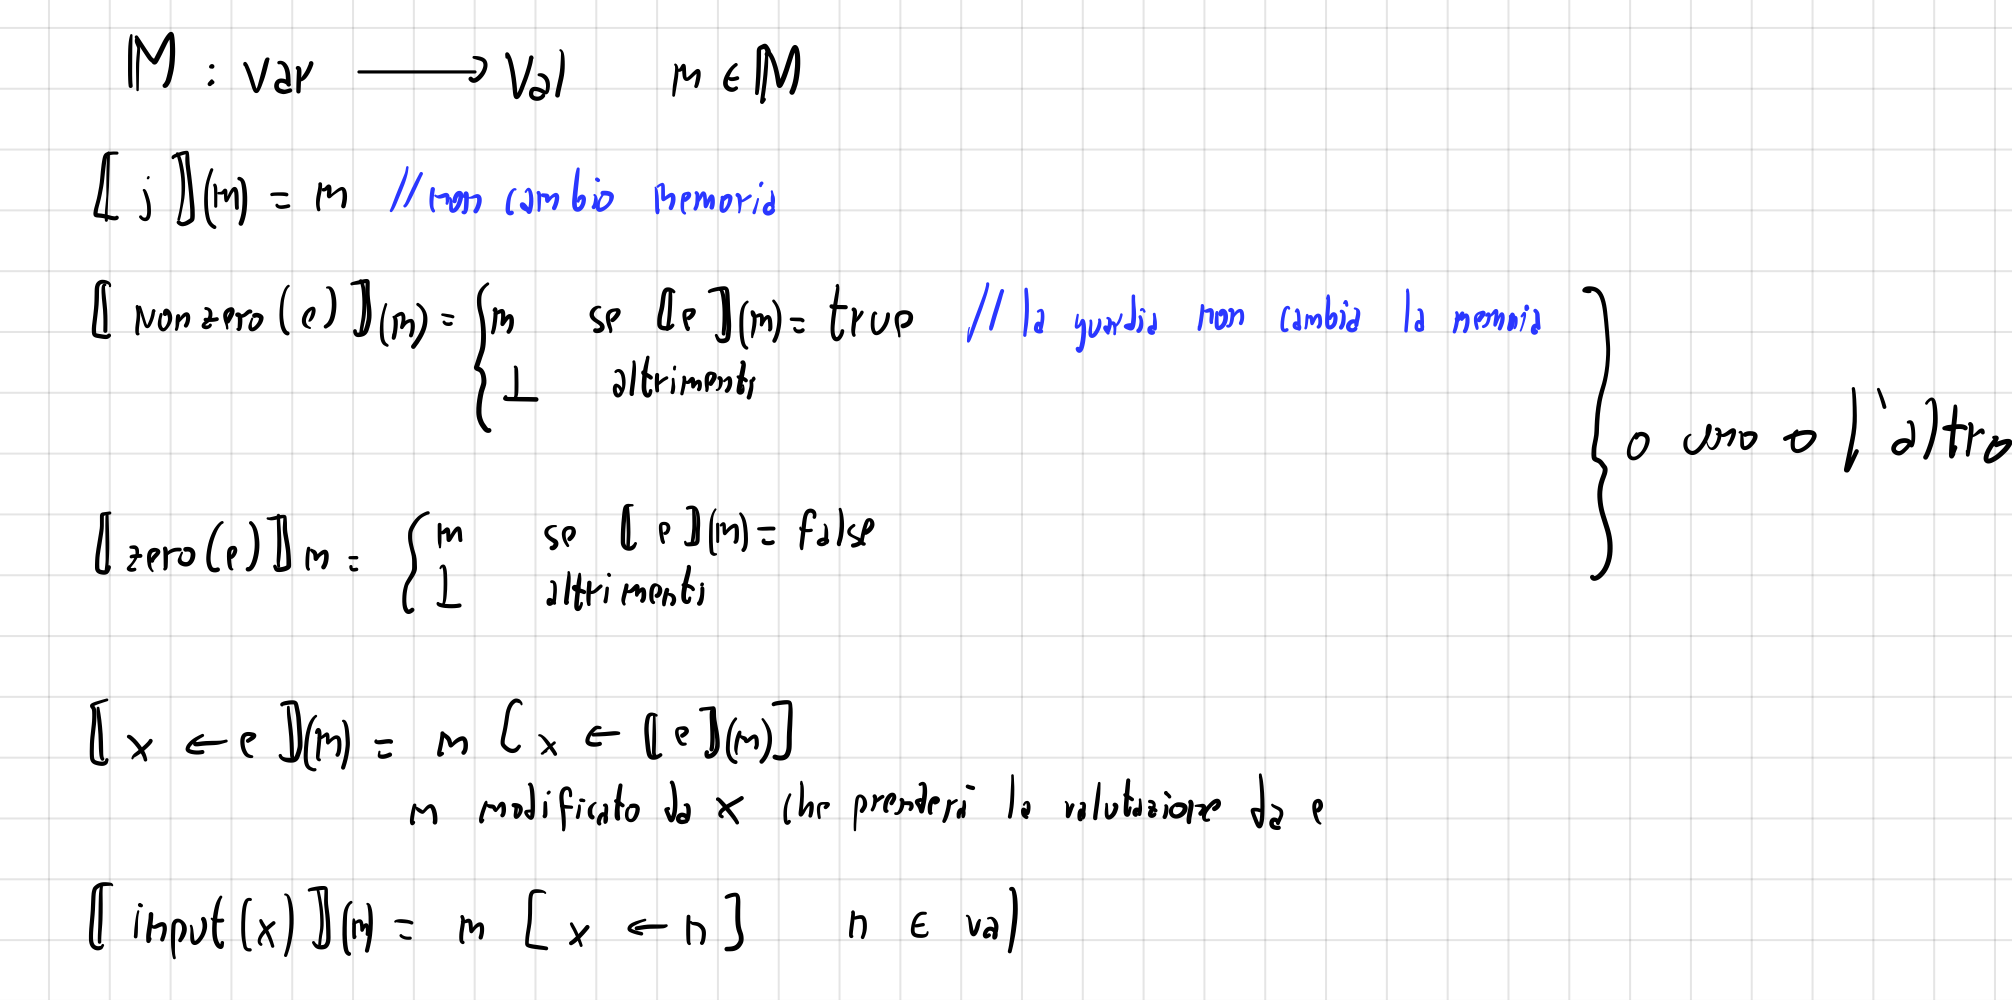 𝕄 : Var ⟶ Val m ∈ 𝕄
⟦ ; ⟧(m) = m // non cambio memoria
⟦ Nonzero(e) ⟧(m) = { m se ⟦e⟧(m) = true // la guardia non cambia la memoria
⊥ altrimenti
} o uno o l'altro
⟦ zero(e) ⟧ m = { m se ⟦ e ⟧(m) = false
⊥ altrimenti
⟦ x ← e ⟧(m) = m [ x ← ⟦ e ⟧(m) ]
m modificato da x che prenderà la valutazione da e
⟦ input(x) ⟧(m) = m [ x ← n ] n ∈ val